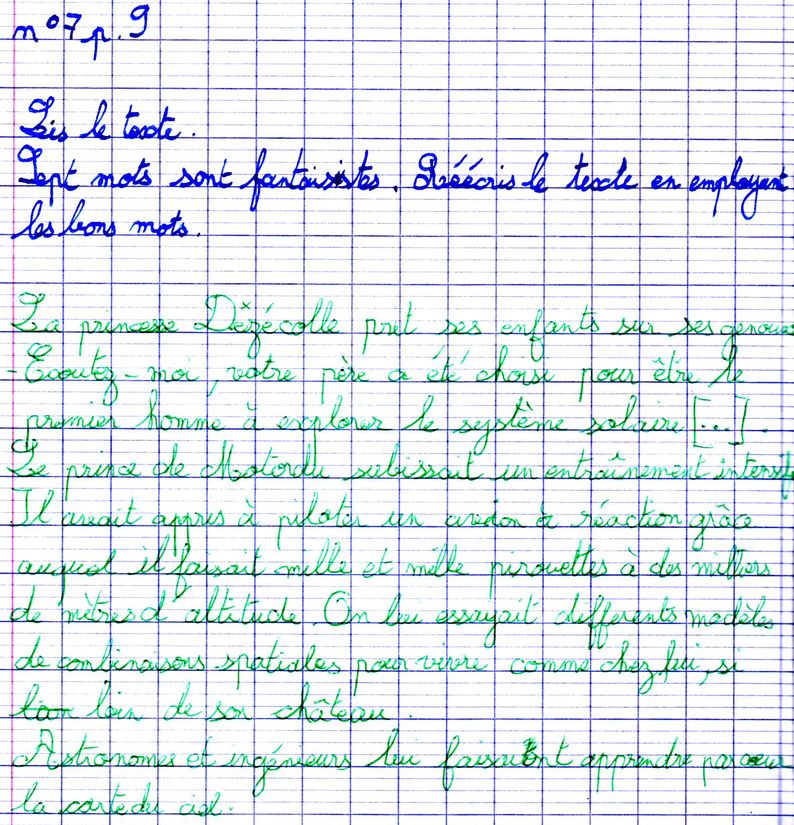 n°7 p. 9
Lis le texte.
Sept mots sont fantaisistes. Réécris le texte en employant
les bons mots.
La princesse Dézécolle prit ses enfants sur ses genoux
- Écoutez-moi, votre père a été choisi pour être le
premier homme à explorer le système solaire [...].
Le prince de Motordu subissait un entraînement intensif
Il avait appris à piloter un avion à réaction grâce
auquel il faisait mille et mille pirouettes à des milliers
de mètres d'altitude. On lui essayait differents modèles
de combinaisons spatiales pour vivre comme chez lui, si
loin de son château.
Astronomes et ingénieurs lui faisaient apprendre par cœur
la carte du ciel.